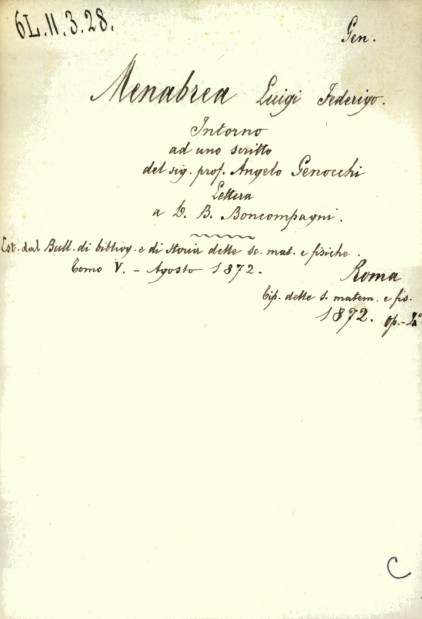 6L.11.3.28.
Gen.
Menabrea Luigi Federigo.
Intorno
ad uno scritto
del sig. prof. Angelo Genocchi
Lettera
a D. B. Boncompagni.
Est. dal Bull. di bibliog. e di storia delle sc. mat. e fisiche.
Tomo V. - Agosto 1872.
Roma
Tip. delle s. matem. e fis.
1872. Op.-4°
C